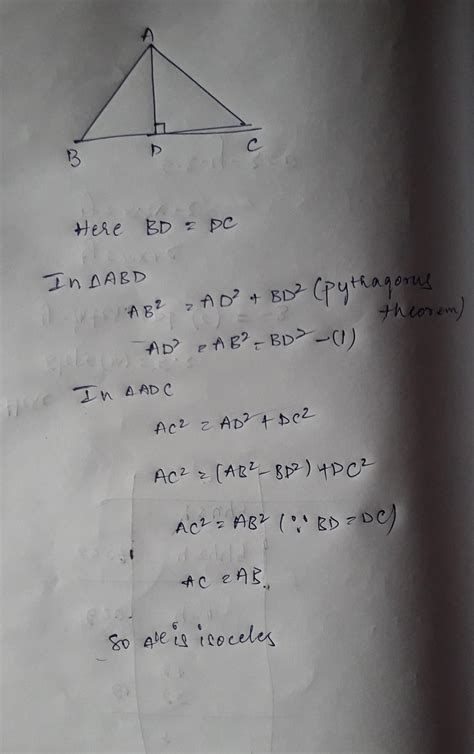 A
B
D
C
Here BD = DC
In △ABD
AB² = AD² + BD² (pythagorus
theorem)
AD² = AB² - BD² -(1)
In △ADC
AC² = AD² + DC²
AC² = (AB² - BD²) + DC²
AC² = AB² (∵ BD = DC)
AC = AB.
So is isoceles